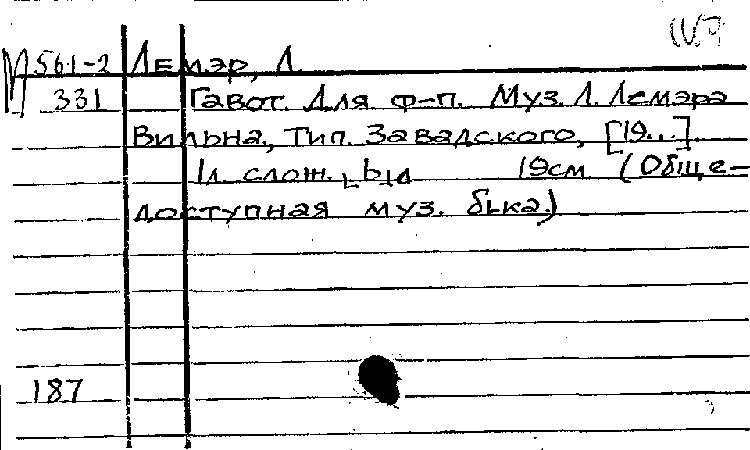 М 561-2 Лемэр, Л.
331 Гавот. Для ф-п. Муз. Л. Лемэра
Вильна, Тип. Завадского, [19...].
1л. слож. 19см (Обще-
доступная муз. б-ка.)
187